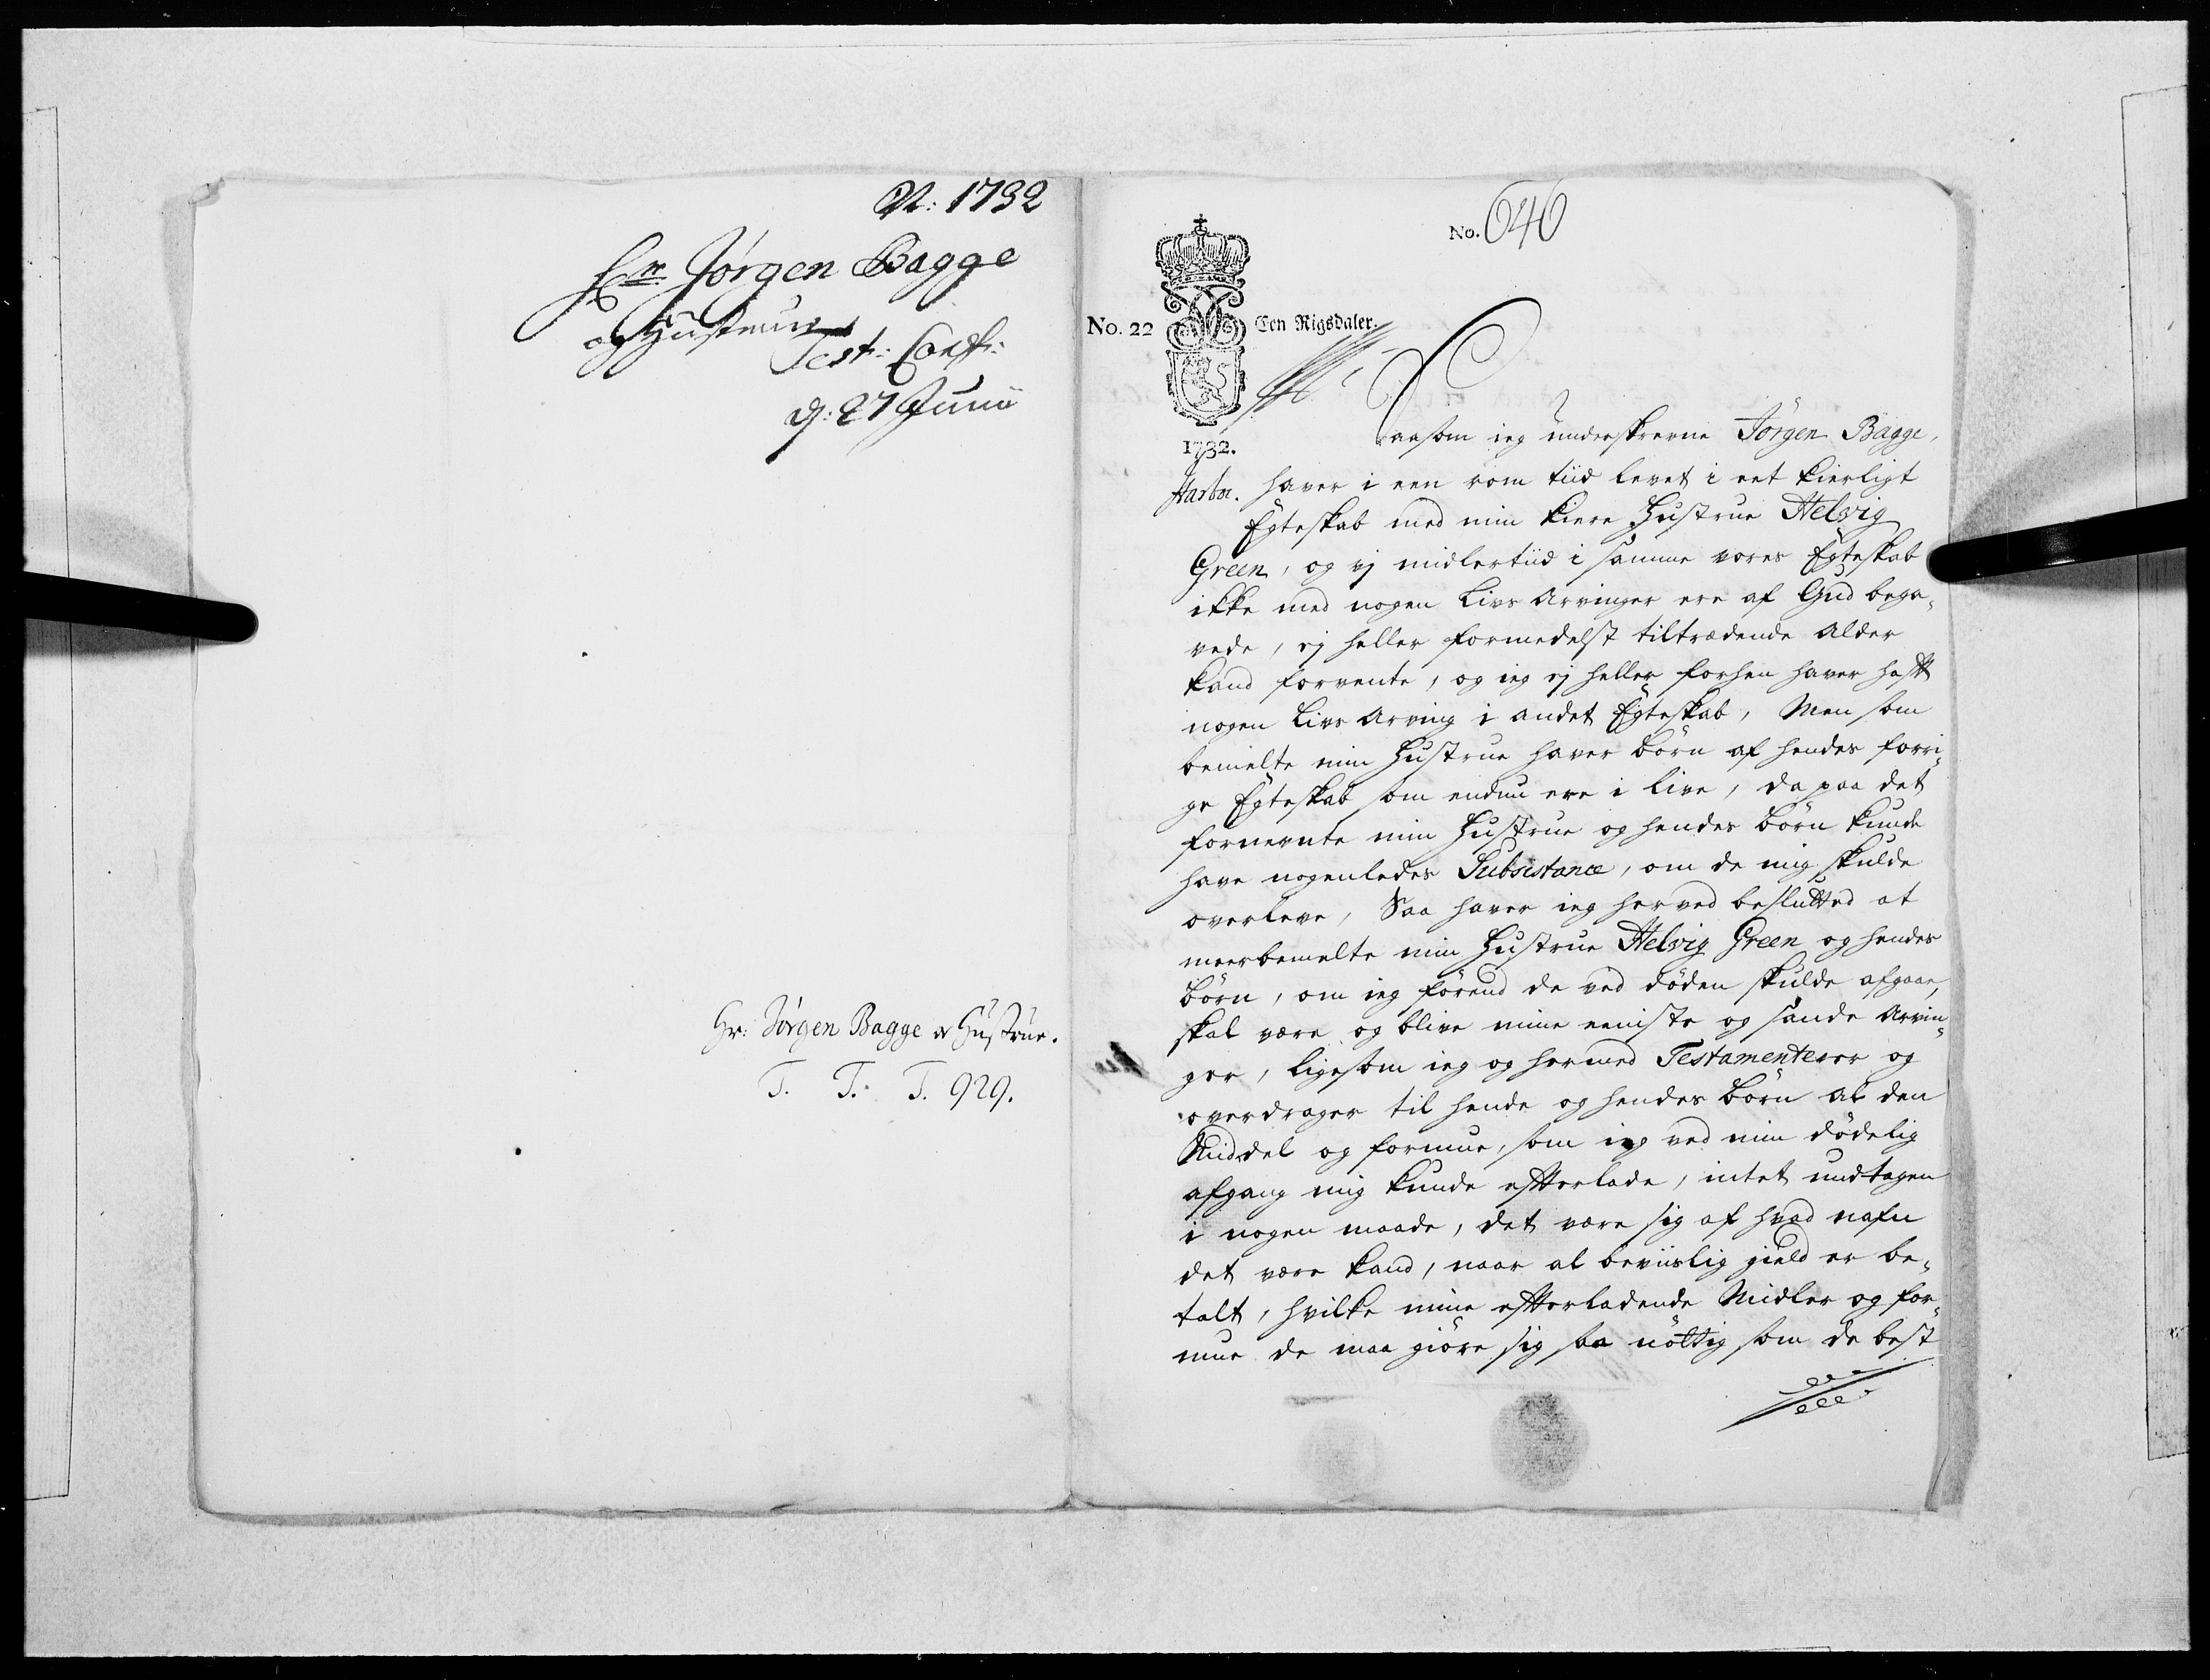 A: 1732
Hr. Jørgen Bagge
og Hustrues
Test: Conf:
d: 27 Junii
Hr: Jørgen Bagge og Hustrue.
T. T. T. 929.
No. 646
No. 22 Een Rigsdaler.
1732.
Saasom ieg underskrevne Jørgen Bagge,
haver i een rom tiid levet i eet kierligt
Egteskab med min kiere Hustrue Helvig
Green, og vj midlertiid i samme vores Egteskab
ikke med nogen Livs Arvinger ere af Gud bega„
vede, ej heller formedelst tiltrædende Alder
kand forvente, og ieg ej heller forhen haver hafft
nogen Livs Arving i andet Egteskab, Men som
bemelte min Hustrue haver börn af hendes forri„
ge Egteskab som endnu ere i Live, da paa det
fornevnte min Hustrue og hendes börn kunde
have nogenledes Subsistance, om de mig skulde
overleve, Saa haver ieg herved beslutted at
meerbemelte min Hustrue Helvig Green og hendes
Börn, om ieg förend de ved döden skulde afgaae,
skal være og blive mine eeniste og sande Arvin„
ger, ligesom ieg og hermed Testamenterer og
overdrager til hende og hendes Börn al den
Middel og formue, som ieg ved min dödelig
afgang mig kunde efterlade, intet undtagen
i nogen maade, det være sig af hvad nafn
det være kand, naar al beviislig gield er be„
talt, hvilke mine efterladende Midler og for„
mue de maa giöre sig saa nöttig som de best